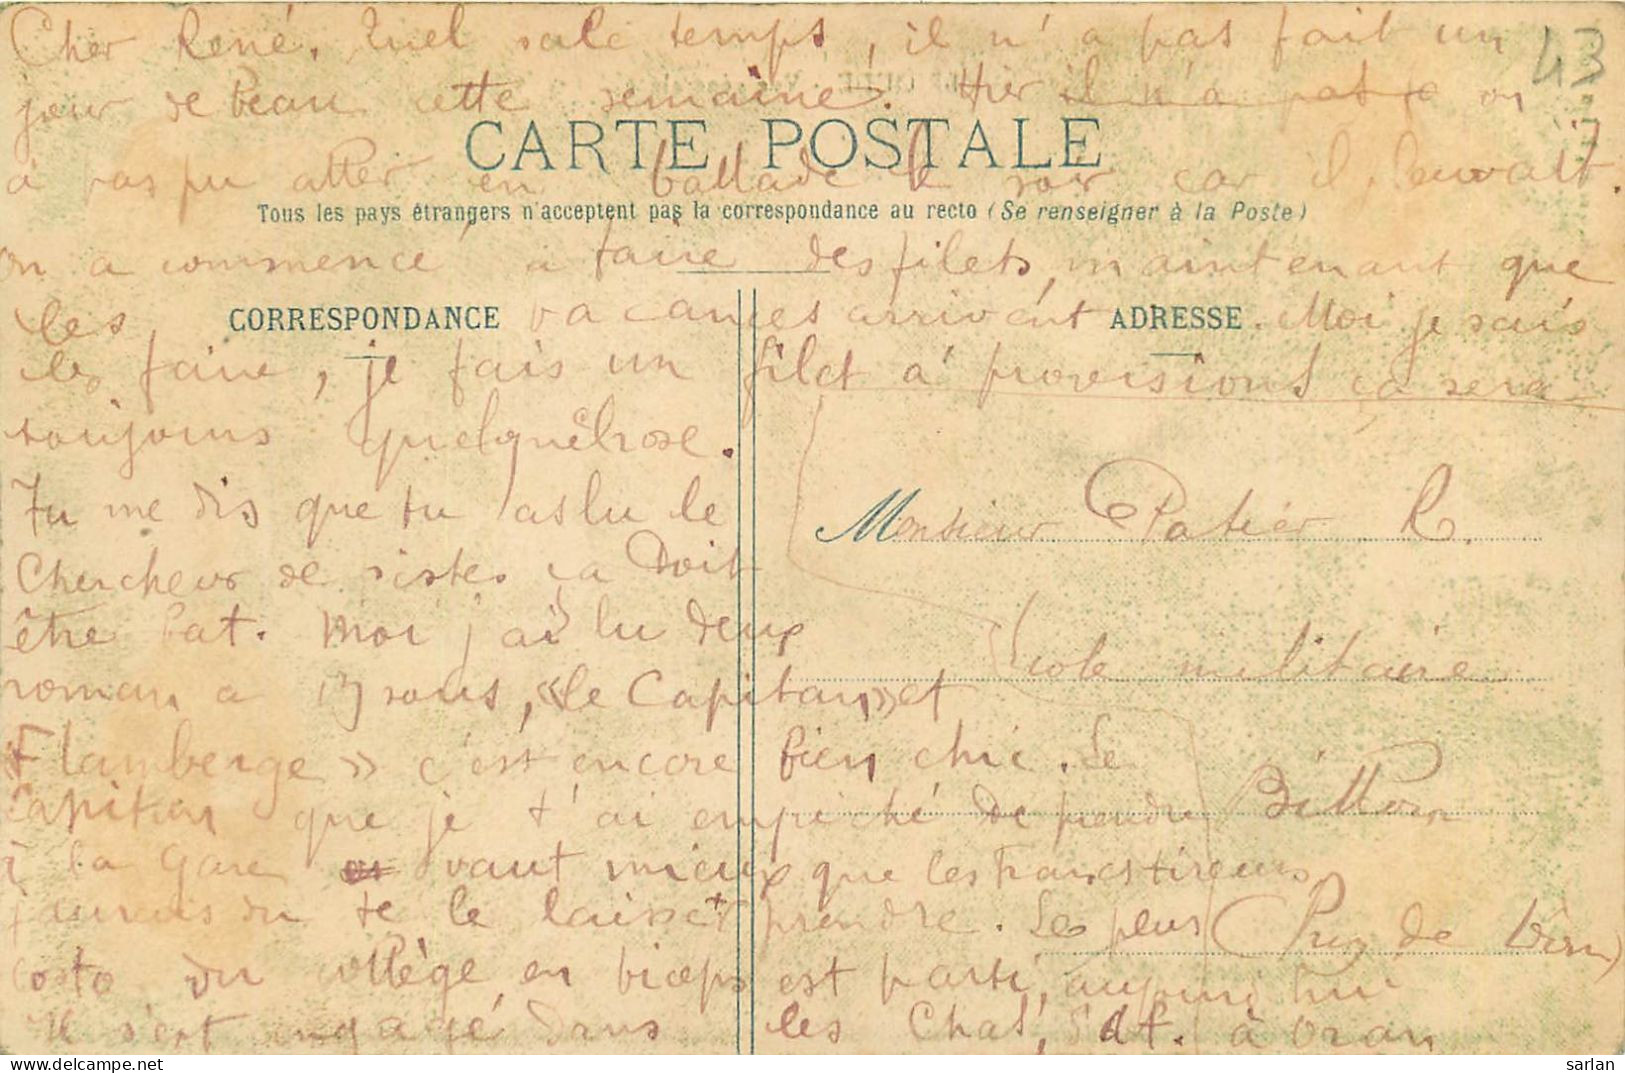 Cher René. Quel sale temps, il n'a pas fait un
43
jour de beau cette semaine. Hier il n'a pas fe on
CARTE POSTALE
a pas pu aller en ballade le soir car il pleuvait.
Tous les pays étrangers n'acceptent pas la correspondance au recto (Se renseigner à la Poste)
on a commencé à faire des filets, maintenant que
les vacances arrivent. Moi je sais
CORRESPONDANCE
ADRESSE
les faire, je fais un filet à provisions ça sera
toujours quelquechose.
Tu me dis que tu as lu le
Chercheur de pistes ça doit
être bat. Moi j'ai lu deux
roman à 13 sous, «le Capitan» et
Flamberge» c'est encore bien chic. Le
Capitan que je t'ai empêché de prendre
à la Gare vaut mieux que les Francstireurs
j'aurais du te le laisser prendre. Le plus
costo du collège en biceps est parti, aujourd'hui
Il s'est engagé dans les Chas, d'Af. à Oran
Monsieur Patier R.
École militaire
Billom
(Puy de Dôme)
sarlan